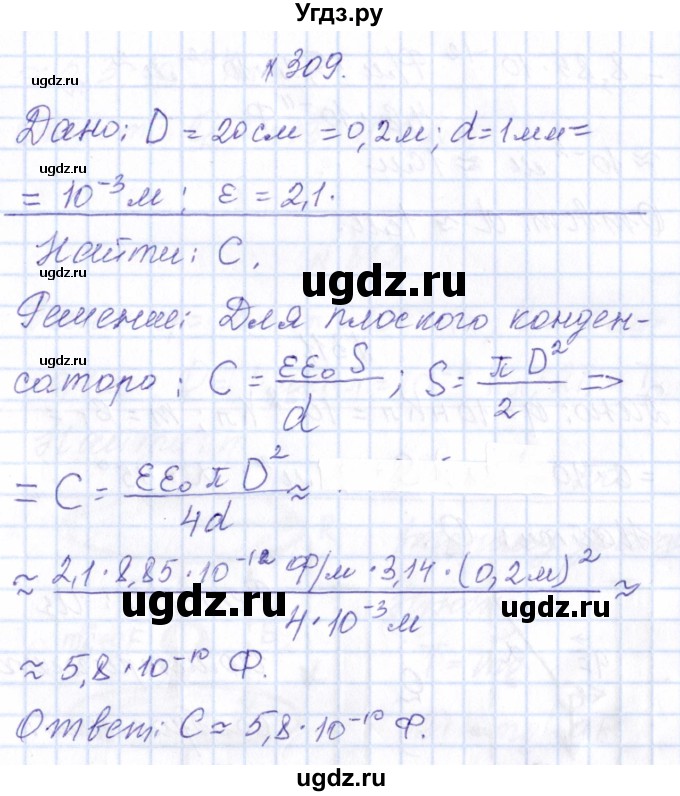 Угдз.ру
№ 309.
ugdz.ru
Дано: D = 20 см = 0,2 м; d = 1 мм =
ugdz.ru
= 10⁻³ м; ε = 2,1.
Найти: C.
ugdz.ru
ugdz.ru
Решение: Для плоского конден-
ugdz.ru
сатора: C = εε₀S/d; S = πD²/2 =>
= C = εε₀πD²/4d ≈
ugdz.ru
≈ 2,1·8,85·10⁻¹² Ф/м·3,14·(0,2м)²/4·10⁻³ м ≈
ugdz.ru
ugdz.ru
≈ 5,8·10⁻¹⁰ Ф.
ugdz.ru
Ответ: C ≈ 5,8·10⁻¹⁰ Ф.
ugdz.ru
ugdz.ru